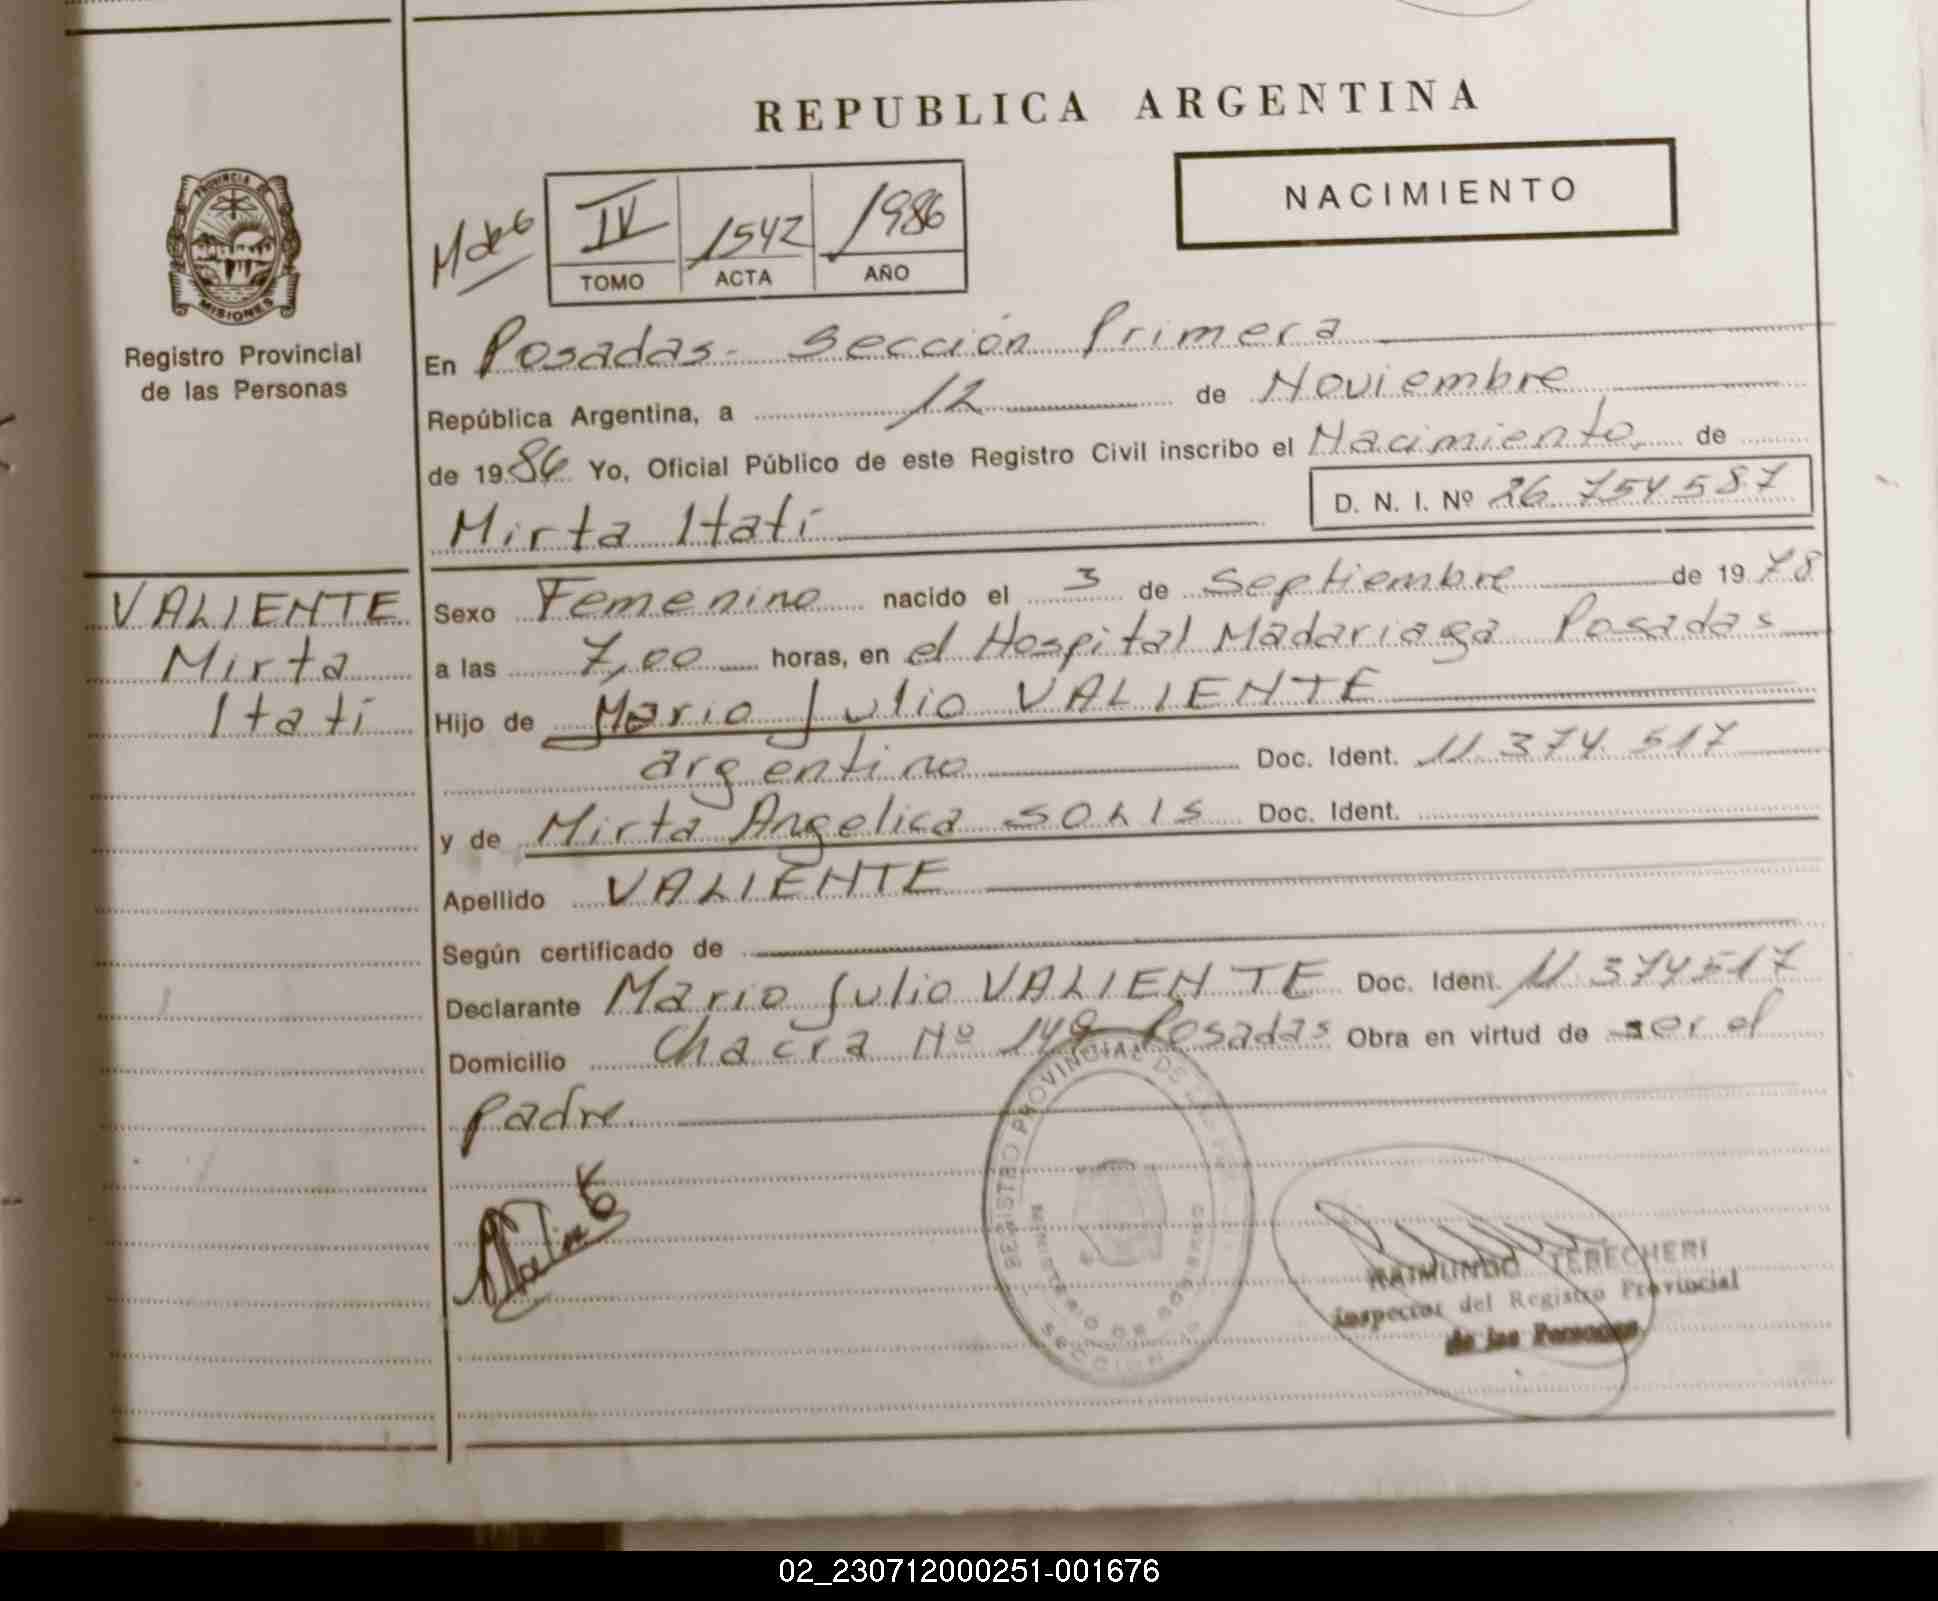 REPUBLICA ARGENTINA
NACIMIENTO
PROVINCIA DE
MISIONES
Registro Provincial
de las Personas
IV 1542 1986
TOMO ACTA AÑO
En Posadas - Sección Primera
República Argentina, a 12 de Noviembre
de 1986 Yo, Oficial Público de este Registro Civil inscribo el Nacimiento de
D. N. I. Nº 26.754587
Mirta Itatí
VALIENTE
Mirta
Itatí
Sexo Femenino nacido el 3 de Septiembre de 1978
a las 7,00 horas, en el Hospital Madariaga Posadas
Hijo de Mario Julio VALIENTE
argentino Doc. Ident. 11.374.517
y de Mirta Angelica SOLIS Doc. Ident.
Apellido VALIENTE
Según certificado de
Declarante Mario Julio VALIENTE Doc. Ident. 11.374517
Domicilio Chacra Nº 149 Posadas Obra en virtud de ser el
padre
REGISTRO PROVINCIAL DE
MINISTERIO DE GOBIERNO
SECCION
RAIMUNDO TERECHERI
Inspector del Registro Provincial
de las Personas
02_230712000251-001676